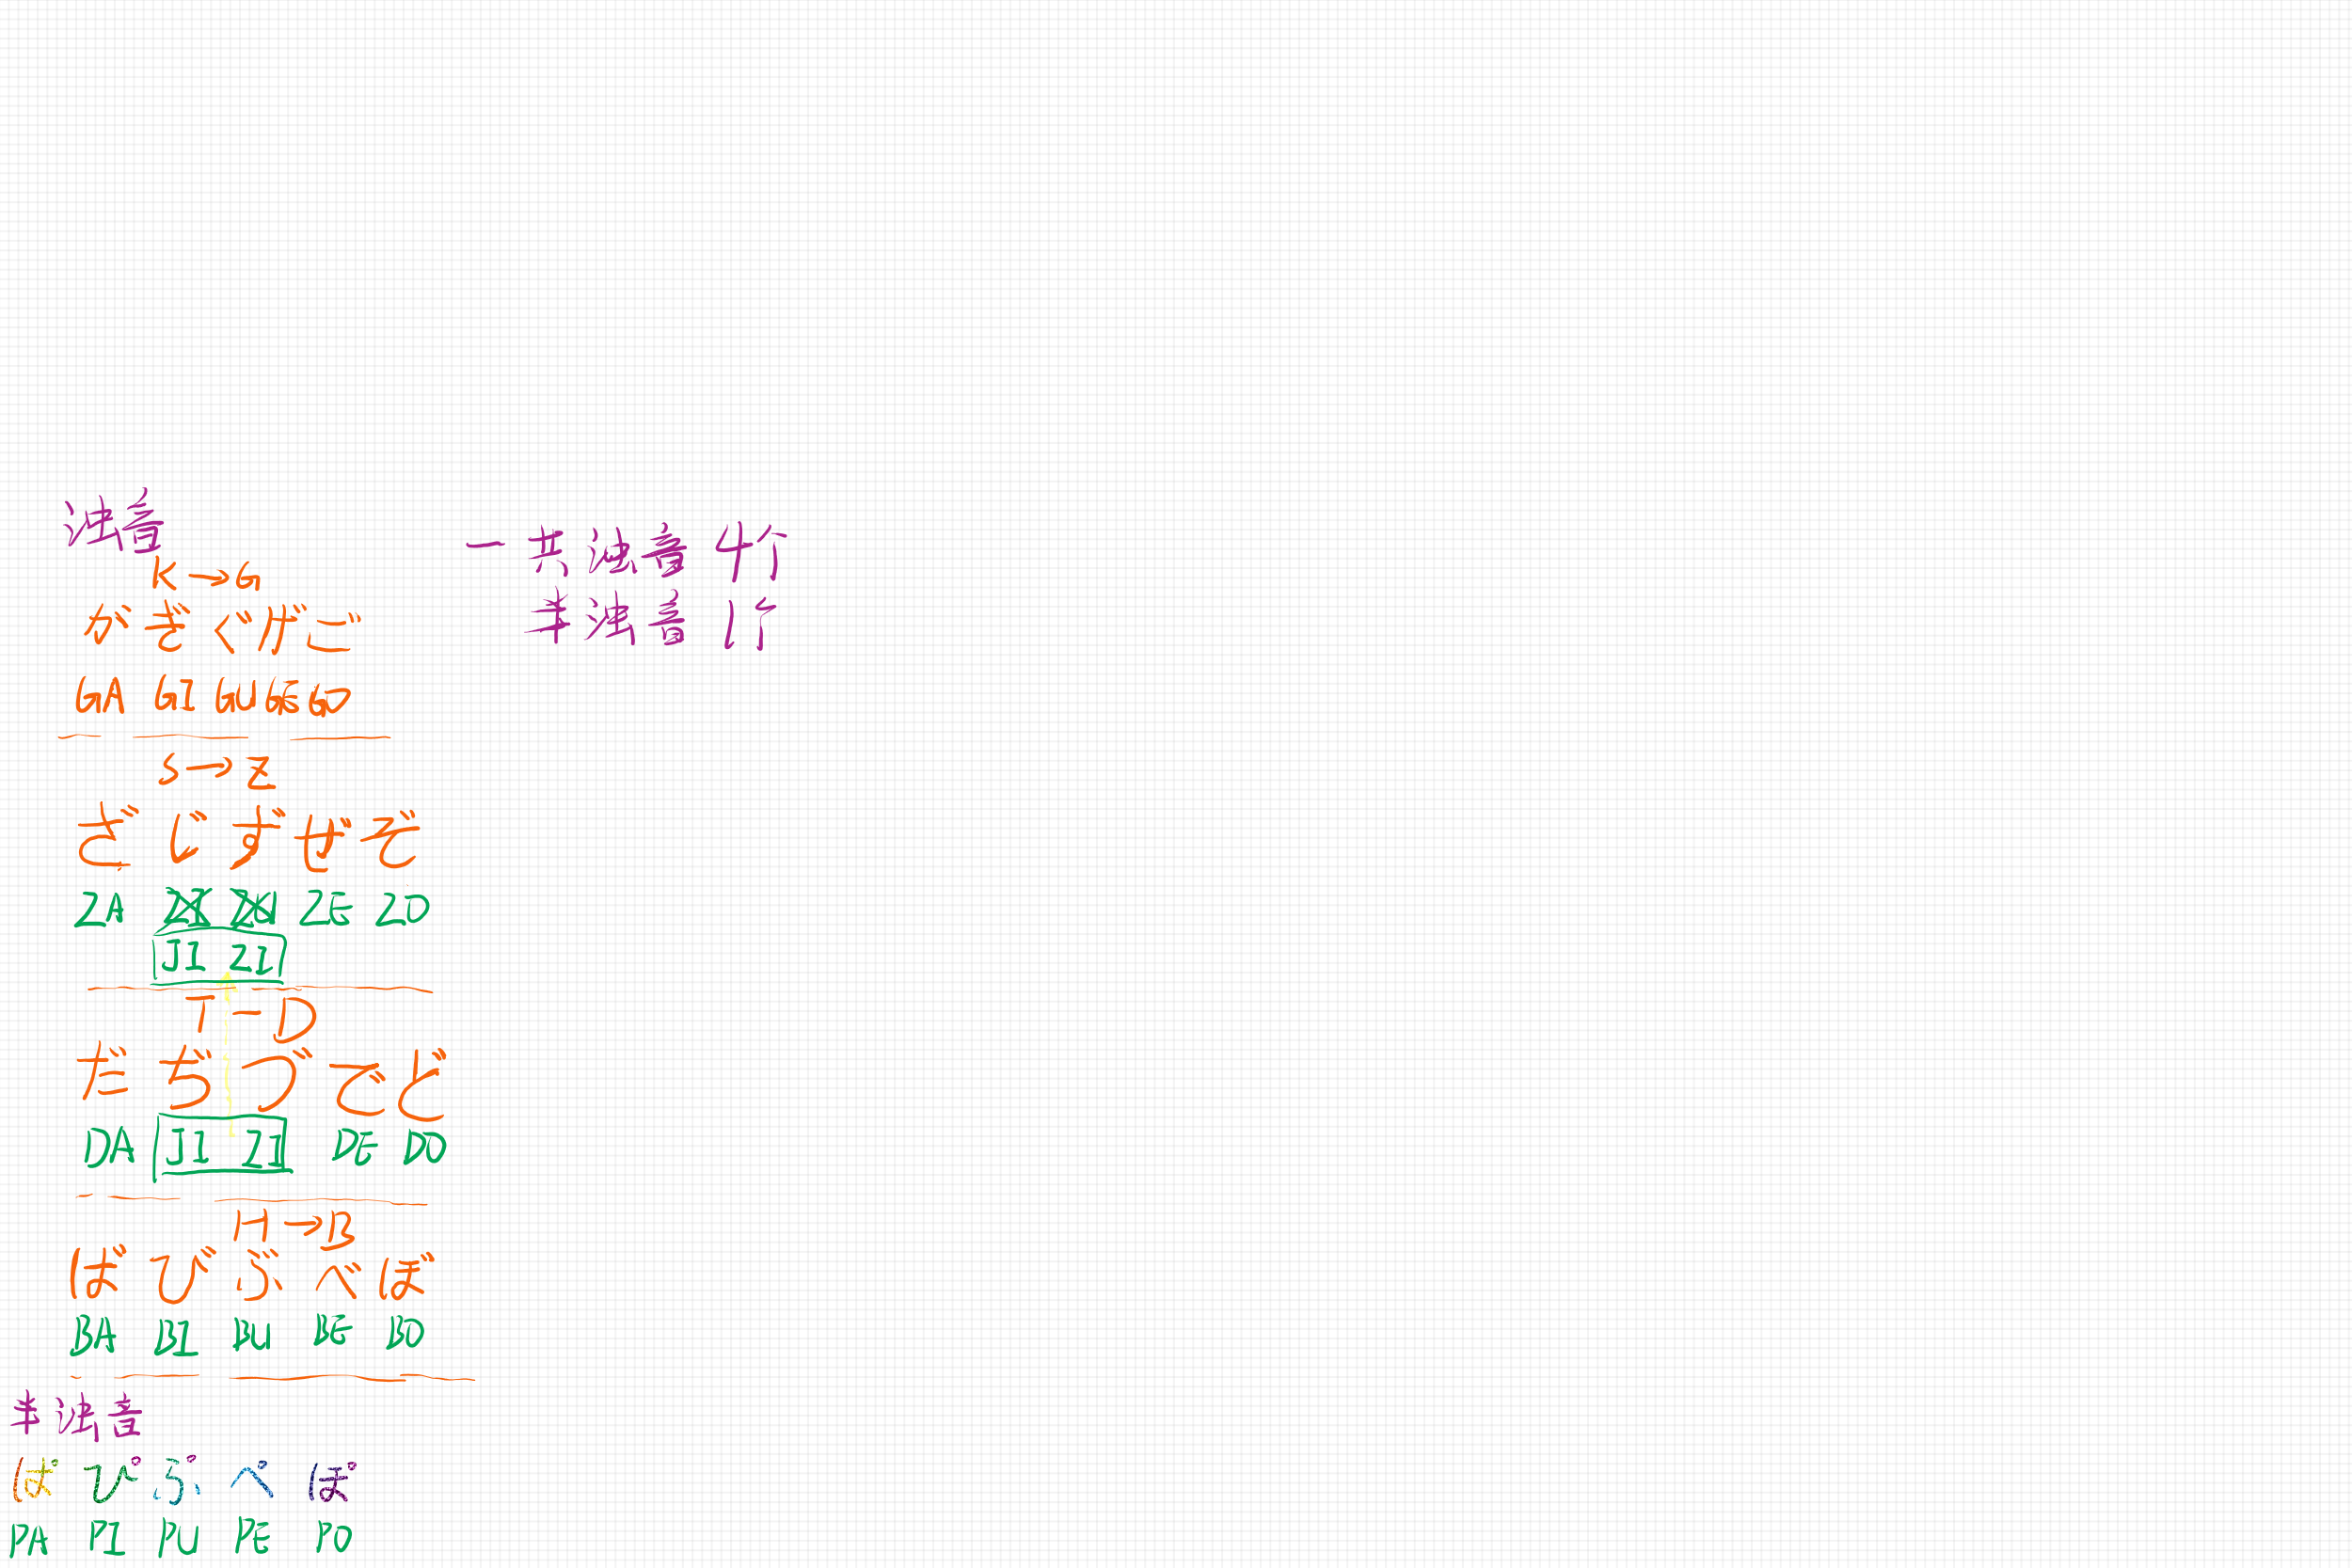 浊音
K→G
がぎぐげご
GA GI GU GE GO
S→Z
ざじずぜぞ
ZA ZE ZO
JI ZI
T-D
だぢづでど
DA JI ZI DE DO
H→B
ばびぶべぼ
BA BI BU BE BO
半浊音
ぱぴぷぺぽ
PA PI PU PE PO
一共浊音4行
半浊音1行